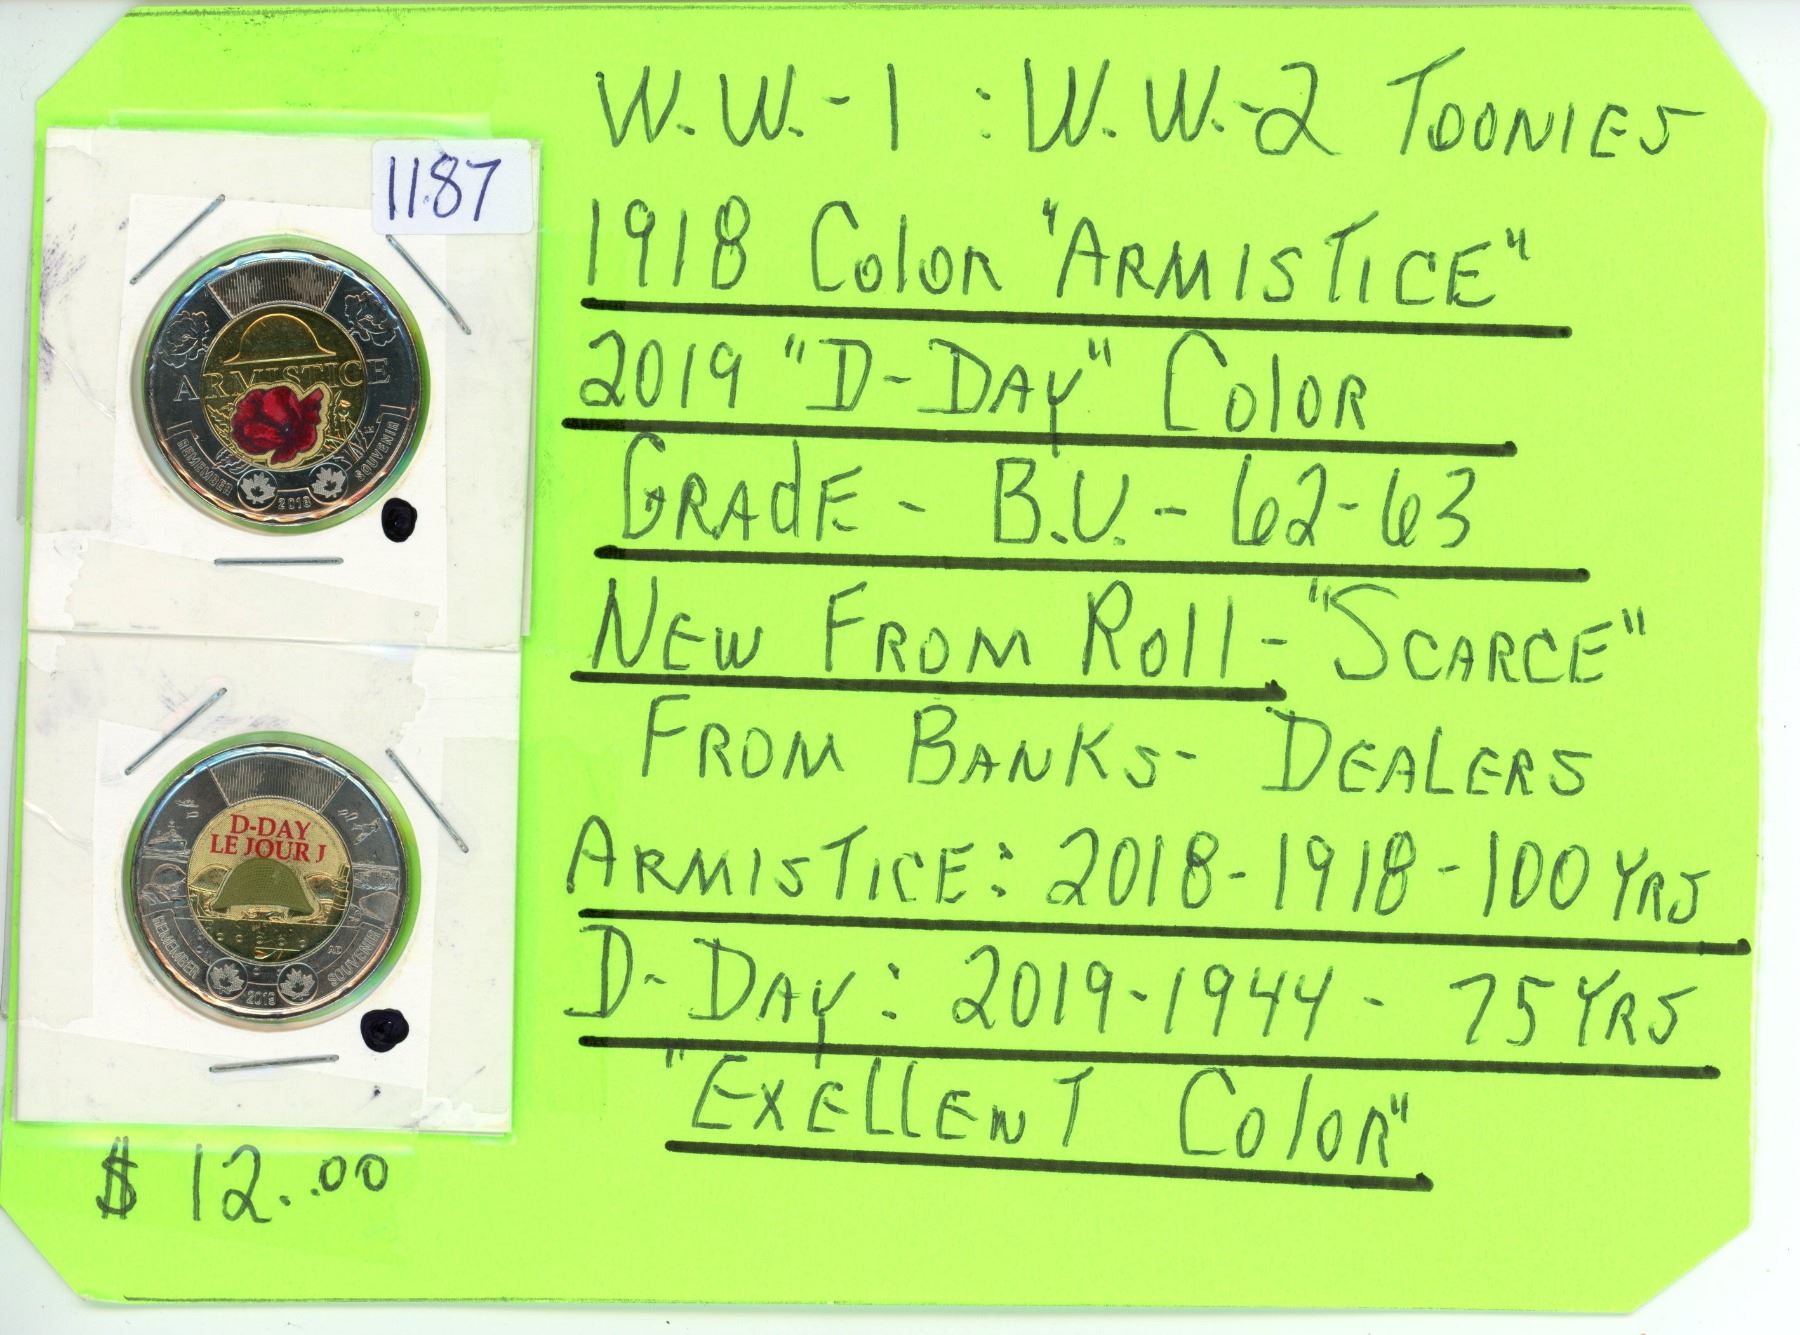 1187
ARMISTICE
REMEMBER
2018
SOUVENIR
D-DAY
LE JOUR J
REMEMBER
2019
SOUVENIR
$ 12.00
W.W.-1 : W.W.-2 TOONIES
1918 Color "ARMISTICE"
2019 "D-DAY" Color
GRAdE - B.U. - 62-63
NEW FROM Roll - "SCARCE"
FROM BANKS - DEALERS
ARMISTICE: 2018-1918-100 YRS
D-DAY: 2019-1944 - 75 YRS
"EXELLENT Color"